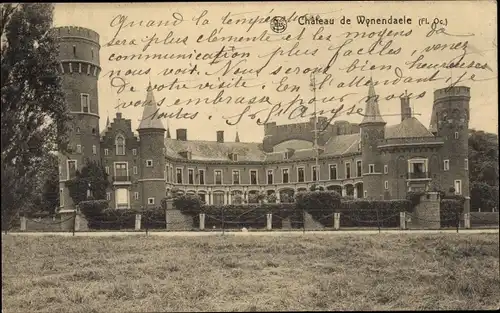 Château de Wynendaele (Fl. Oc.)
Quand la température
sera plus clémente et les moyens de
communication plus faciles, venez
nous voir. Nous serons bien heureuses
de votre visite. En l'attendant je
vous embrasse
toutes.